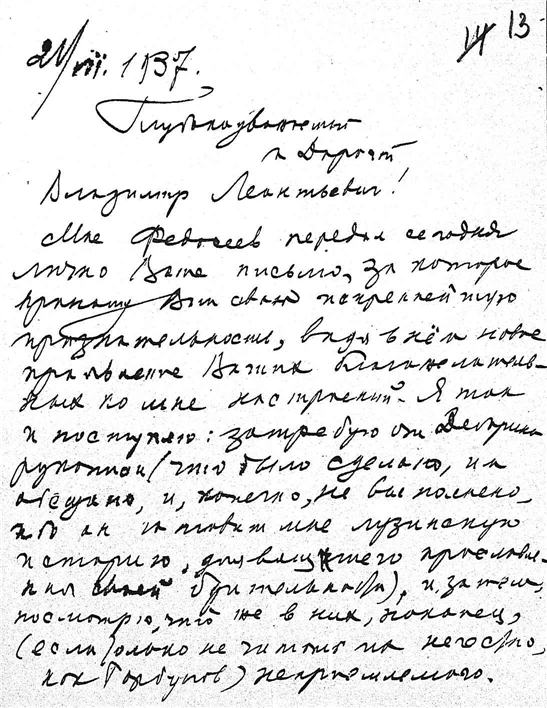 13
21/VII. 1937.
Глубокоуважаемый
и Дорогой
Владимир Леонтьевич!
Мне Федосеев передал сегодня
лично Ваше письмо, за которое
приношу Вам свою искреннейшую
признательность, видя в нём новое
проявление Ваших благожелатель-
ных ко мне настроений. Я так
и поступлю: затребую от Деборина
рукописи (что было сделано, им
обещано, и, конечно, не выполнено,
ибо он готовит мне лузинскую
историю, для вящшего прославле-
ния своей бдительности), и, затем,
посмотрю, что же в них, наконец,
(если только не читать на
как Горбунов) неприемлемого.